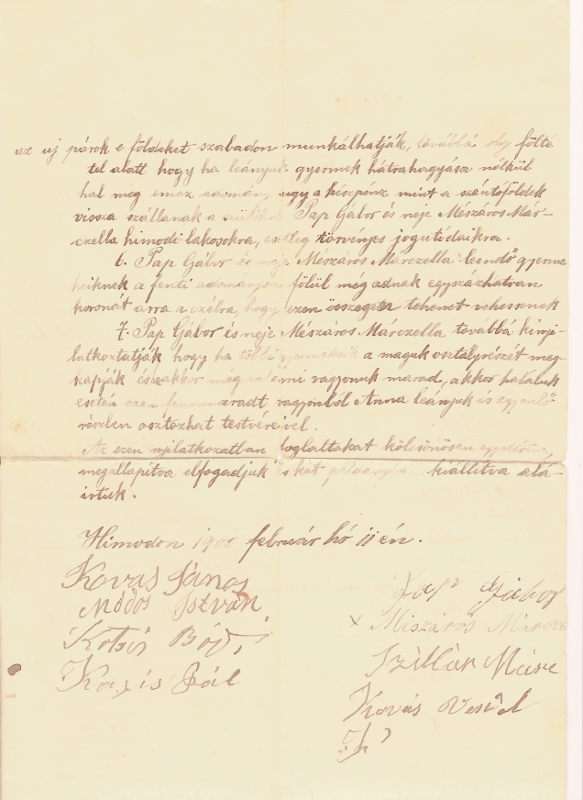 az uj párok e földeket szabadon munkálhatják, továbbá oly fölté
tel alatt hogy ha leányuk gyermek hátrahagyása nélkül
hal meg emez adomány ugy a készpénz mint a szántóföldek
vissza szállanak a Pap Gábor és neje Mészáros Már-
czella himodi lakosokra, esetleg törvényes jogutódaikra.
6. Pap Gábor és neje Mészáros Márczella leendő gyerme
keiknek a fenti adományon fölül meg adnak egyszázhatvan
koronát arra a czélra, hogy ezen összegen tehenet vehessenek
7. Pap Gábor és neje Mészáros Márczella továbbá kinyi-
latkoztatják hogy ha többi gyermekeik a maguk osztályrészét meg
kapják és akkor még valami vagyonuk marad, akkor haláluk
esetén ezen fennmaradt vagyonból Anna leányuk is egyenlő
részben osztozhat testvéreivel.
Az ezen nyilatkozatban foglaltakat kölcsönösen
megállapitva elfogadjuk és két példányba kiállitva alá-
irtuk.
Himodon 1900 február hó 11 én.
Kovas János
Módos István
Pál
Pap Gábor
x Miszáros Márcze
Kovás